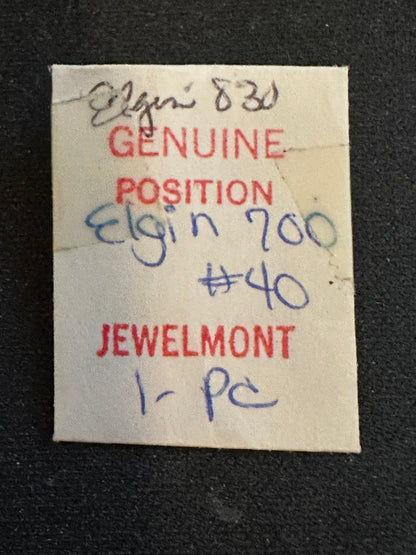 Elgin 830
GENUINE
POSITION
Elgin 700
#40
JEWELMONT
1- PC